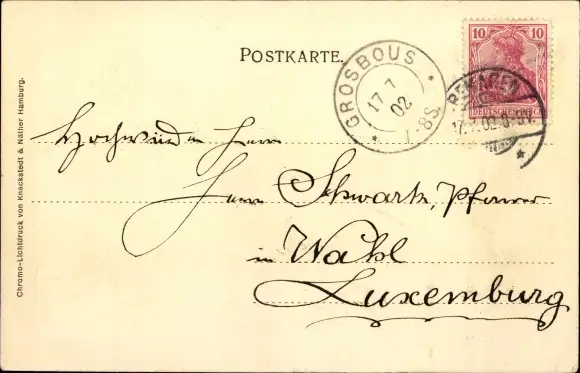 POSTKARTE.
GROSBOUS
17 7
02
7-8S.
10 10
REMAGEN
DEUTSCHES REICH
17.7.02.
Hochwürden Herrn
Herrn Schwartz, Pfarrer
in Wahl
Luxemburg
Chromo-Lichtdruck von Knackstedt & Näther Hamburg.